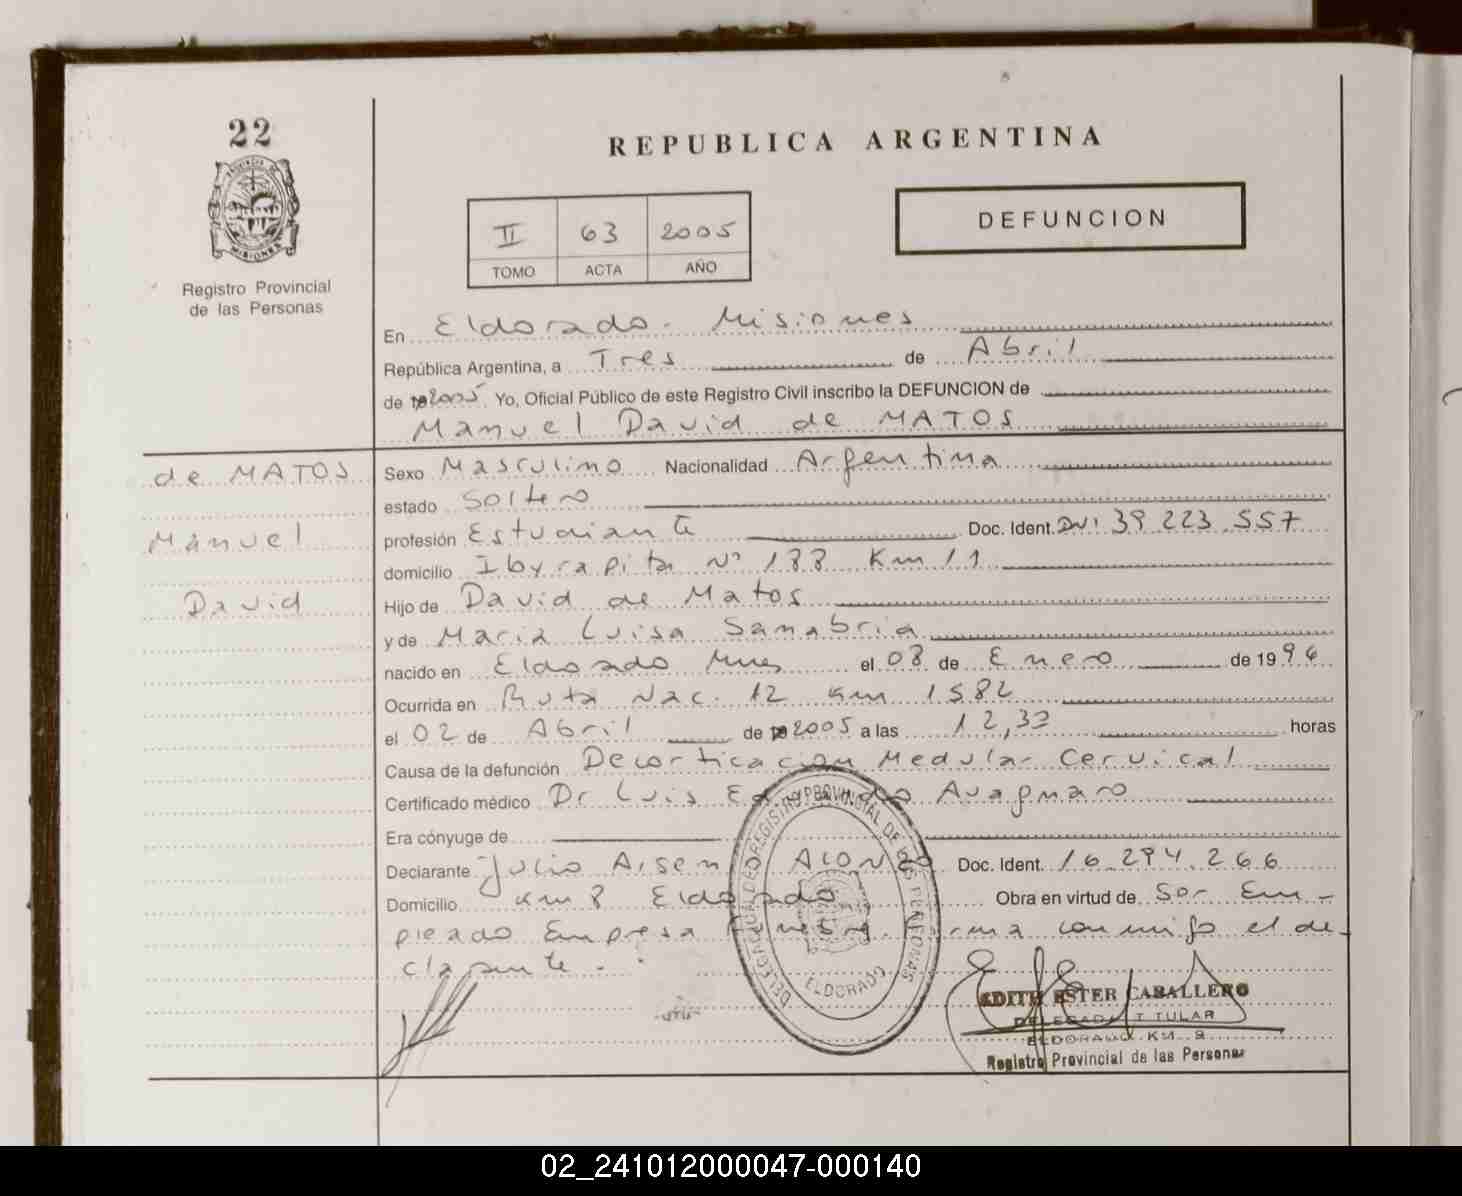 22
REPUBLICA ARGENTINA
DEFUNCION
II 63 2005
TOMO ACTA AÑO
PROVINCIA DE
MISIONES
Registro Provincial
de las Personas
En Eldorado - Misiones
República Argentina, a Tres de Abril
de 2005 Yo, Oficial Público de este Registro Civil inscribo la DEFUNCION de
Manuel David de MATOS
de MATOS
Manuel
David
Sexo Masculino Nacionalidad Argentina
estado Soltero
profesión Estudiante Doc. Ident. DNI 39 223 557
domicilio Ibyrapita Nº 188 Km 11
Hijo de David de Matos
y de Maria Luisa Sanabria
nacido en Eldorado Mnes el 08 de Enero de 1996
Ocurrida en Ruta Nac. 12 Km 1582
el 02 de Abril de 2005 a las 12,30 horas
Causa de la defunción Decorticacion Medular Cervical
Certificado médico Dr Luis Avagnaro
Era cónyuge de
Declarante Julio Arsen Alonzo Doc. Ident. 16.294.266
Domicilio Km 8 Eldorado Obra en virtud de Ser Em-
pleado Empresa Funebre. Firma conmigo el de-
clarante.-
DELEGACION DEL REGISTRO PROVINCIAL DE LAS PERSONAS
ELDORADO
EDITH ESTER CABALLERO
DELEGADA TITULAR
ELDORADO KM. 9
Registro Provincial de las Personas
02_241012000047-000140